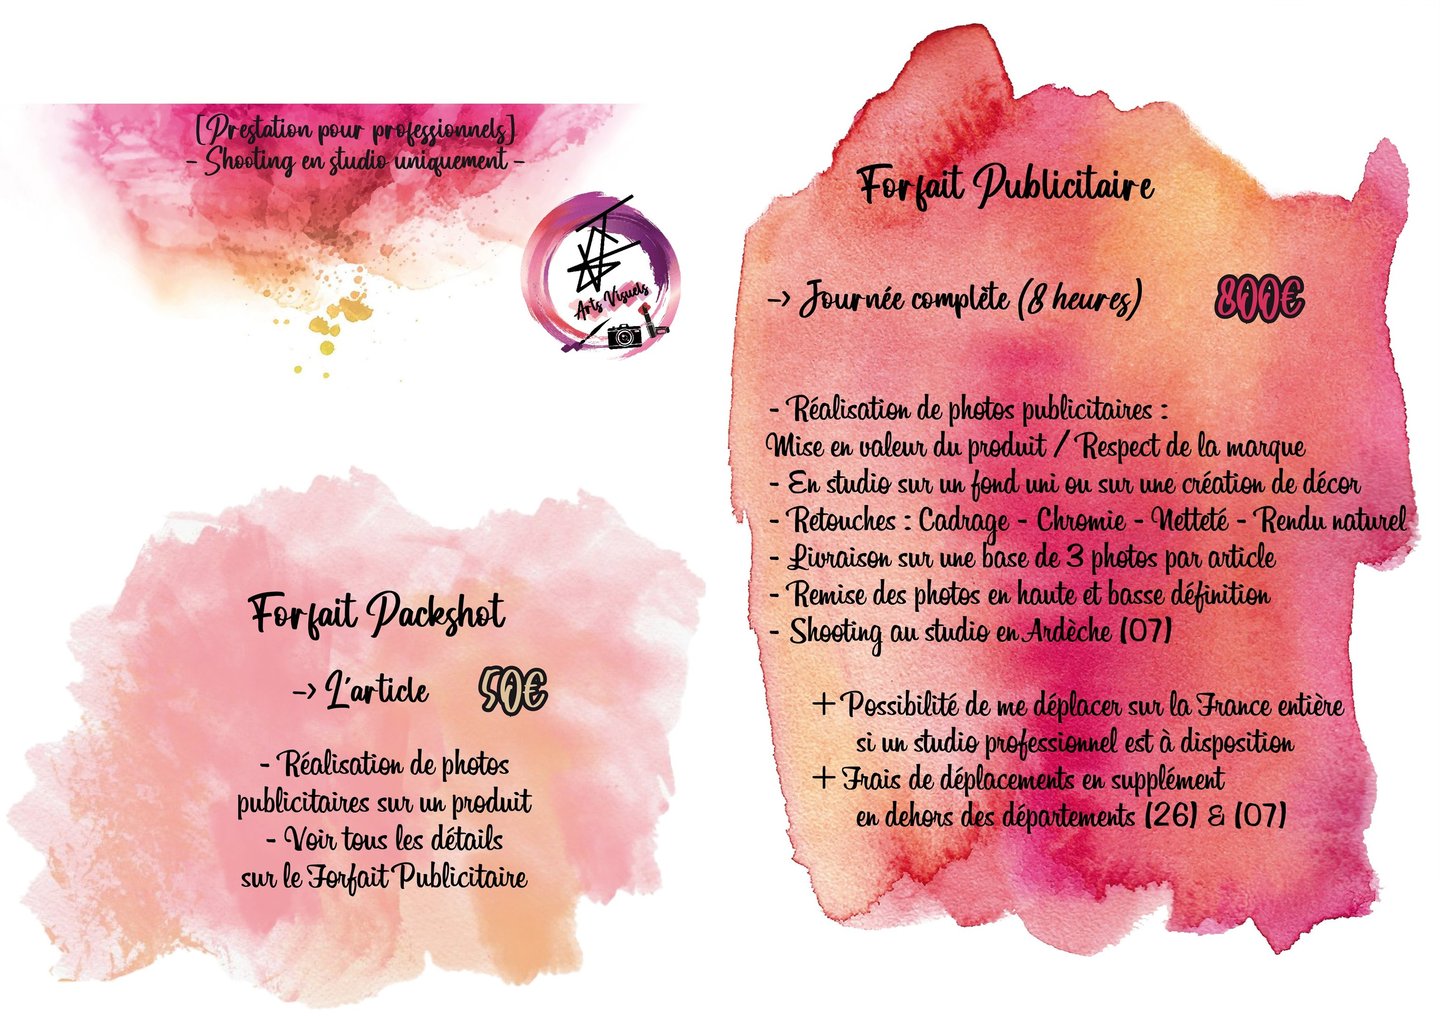 [Prestation pour professionnels]
- Shooting en studio uniquement -
Arts Visuels
Forfait Packshot
-> L'article 50€
- Réalisation de photos
publicitaires sur un produit
- Voir tous les détails
sur le Forfait Publicitaire
Forfait Publicitaire
-> Journée complète (8 heures) 800€
- Réalisation de photos publicitaires :
Mise en valeur du produit / Respect de la marque
- En studio sur un fond uni ou sur une création de décor
- Retouches : Cadrage - Chromie - Netteté - Rendu naturel
- Livraison sur une base de 3 photos par article
- Remise des photos en haute et basse définition
- Shooting au studio en Ardèche (07)
+ Possibilité de me déplacer sur la France entière
si un studio professionnel est à disposition
+ Frais de déplacements en supplément
en dehors des départements (26) & (07)